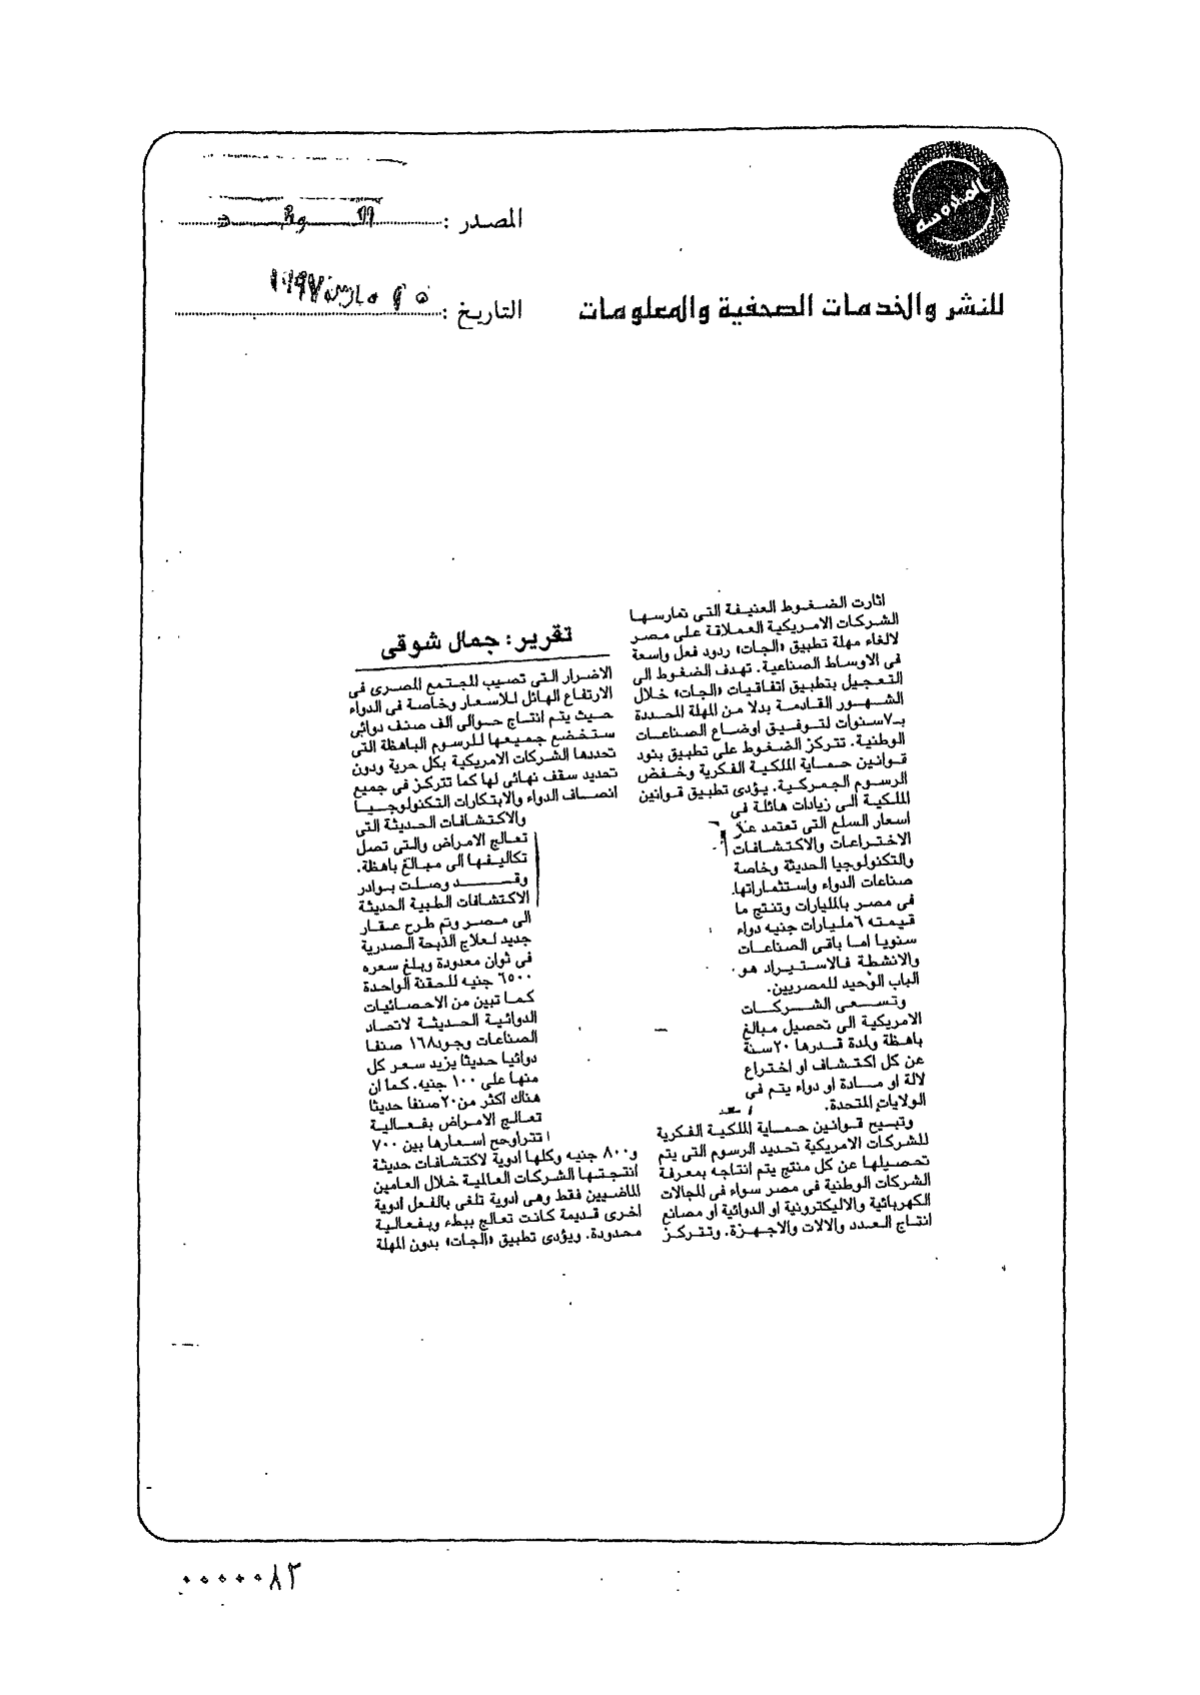 المصدر :
التاريخ : ٢٥ مارس ١٩٩٧
للنشر والخدمات الصحفية والمعلومات
اثارت الضغوط العنيفة التى تمارسها
الشركات الامريكية العملاقة على مصر
لالغاء مهلة تطبيق «الجات» ردود فعل واسعة
فى الاوساط الصناعية. تهدف الضغوط الى
التعجيل بتطبيق اتفاقيات «الجات» خلال
الشهور القادمة بدلا من المهلة المحددة
بـ٧سنوات لتوفيق اوضاع الصناعات
الوطنية. تتركز الضغوط على تطبيق بنود
قوانين حماية الملكية الفكرية وخفض
الرسوم الجمركية. يؤدى تطبيق قوانين
الملكية الى زيادات هائلة فى
اسعار السلع التى تعتمد على
الاختراعات والاكتشافات
والتكنولوجيا الحديثة وخاصة
صناعات الدواء واستثماراتها
فى مصر بالمليارات وتنتج ما
قيمته ٦مليارات جنيه دواء
سنويا اما باقى الصناعات
والانشطة فالاستيراد هو
الباب الوحيد للمصريين.
وتسعى الشركات
الامريكية الى تحصيل مبالغ
باهظة ولمدة قدرها ٢٠سنة
عن كل اكتشاف او اختراع
لالة او مادة او دواء يتم فى
الولايات المتحدة.
وتبيح قوانين حماية الملكية الفكرية
للشركات الامريكية تحديد الرسوم التى يتم
تحصيلها عن كل منتج يتم انتاجه بمعرفة
الشركات الوطنية فى مصر سواء فى المجالات
الكهربائية والاليكترونية او الدوائية او مصانع
انتاج العدد والالات والاجهزة. وتتركز
تقرير: جمال شوقى
الاضرار التى تصيب المجتمع المصرى فى
الارتفاع الهائل للاسعار وخاصة فى الدواء
حيث يتم انتاج حوالى الف صنف دوائى
ستخضع جميعها للرسوم الباهظة التى
تحددها الشركات الامريكية بكل حرية ودون
تحديد سقف نهائى لها كما تتركز فى جميع
انصاف الدواء والابتكارات التكنولوجيا
والاكتشافات الحديثة التى
تعالج الامراض والتى تصل
تكاليفها الى مبالغ باهظة.
وقد وصلت بوادر
الاكتشافات الطبية الحديثة
الى مصر وتم طرح عقار
جديد لعلاج الذبحة الصدرية
فى ثوان معدودة وبلغ سعره
٦٥٠٠ جنيه للحقنة الواحدة
كما تبين من الاحصائيات
الدوائية الحديثة لاتحاد
الصناعات وجود١٦٨ صنفا
دوائيا حديثا يزيد سعر كل
منها على ١٠٠ جنيه. كما ان
هناك اكثر من٢٠صنفا حديثا
تعالج الامراض بفعالية
تتراوح اسعارها بين ٧٠٠
و٨٠٠ جنيه وكلها ادوية لاكتشافات حديثة
انتجتها الشركات العالمية خلال العامين
الماضيين فقط وهى ادوية تلغى بالفعل ادوية
اخرى قديمة كانت تعالج ببطء وبفعالية
محدودة. ويؤدى تطبيق «الجات» بدون المهلة
٠٠٠٠٠٨٢